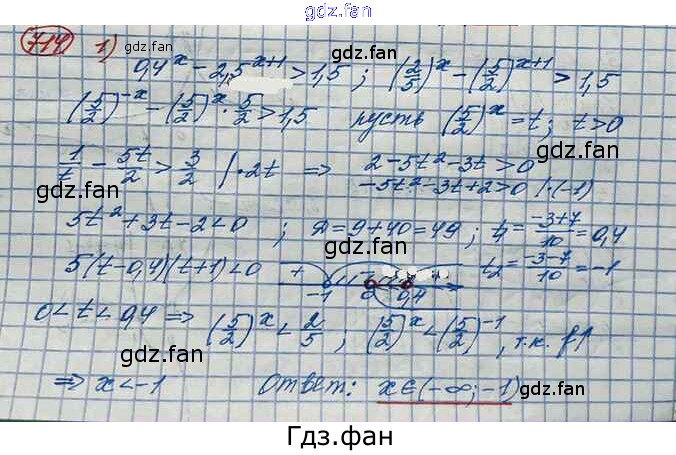 gdz.fan
714 1)
gdz.fan gdz.fan
0,4^x - 2,5^{x+1} > 1,5 ; (2/5)^x - (5/2)^{x+1} > 1,5
(5/2)^{-x} - (5/2)^x · 5/2 > 1,5 пусть (5/2)^x = t; t>0
gdz.fan
1/t - 5t/2 > 3/2 | · 2t ⇒ 2-5t²-3t>0
gdz.fan gdz.fan
-5t²-3t+2>0 |·(-1)
5t²+3t-2<0 ; D=9+40=49 ; t₁= (-3+7)/10 = 0,4
gdz.fan
5(t-0,4)(t+1)<0 + -1 0 0,4 t₂= (-3-7)/10 = -1
gdz.fan
0<t<0,4 ⇒ (5/2)^x < 2/5 ; (5/2)^x < (5/2)^{-1}, т.к. f↑
gdz.fan gdz.fan
⇒ x<-1 Ответ: x∈(-∞;-1)
gdz.fan
Гдз.фан